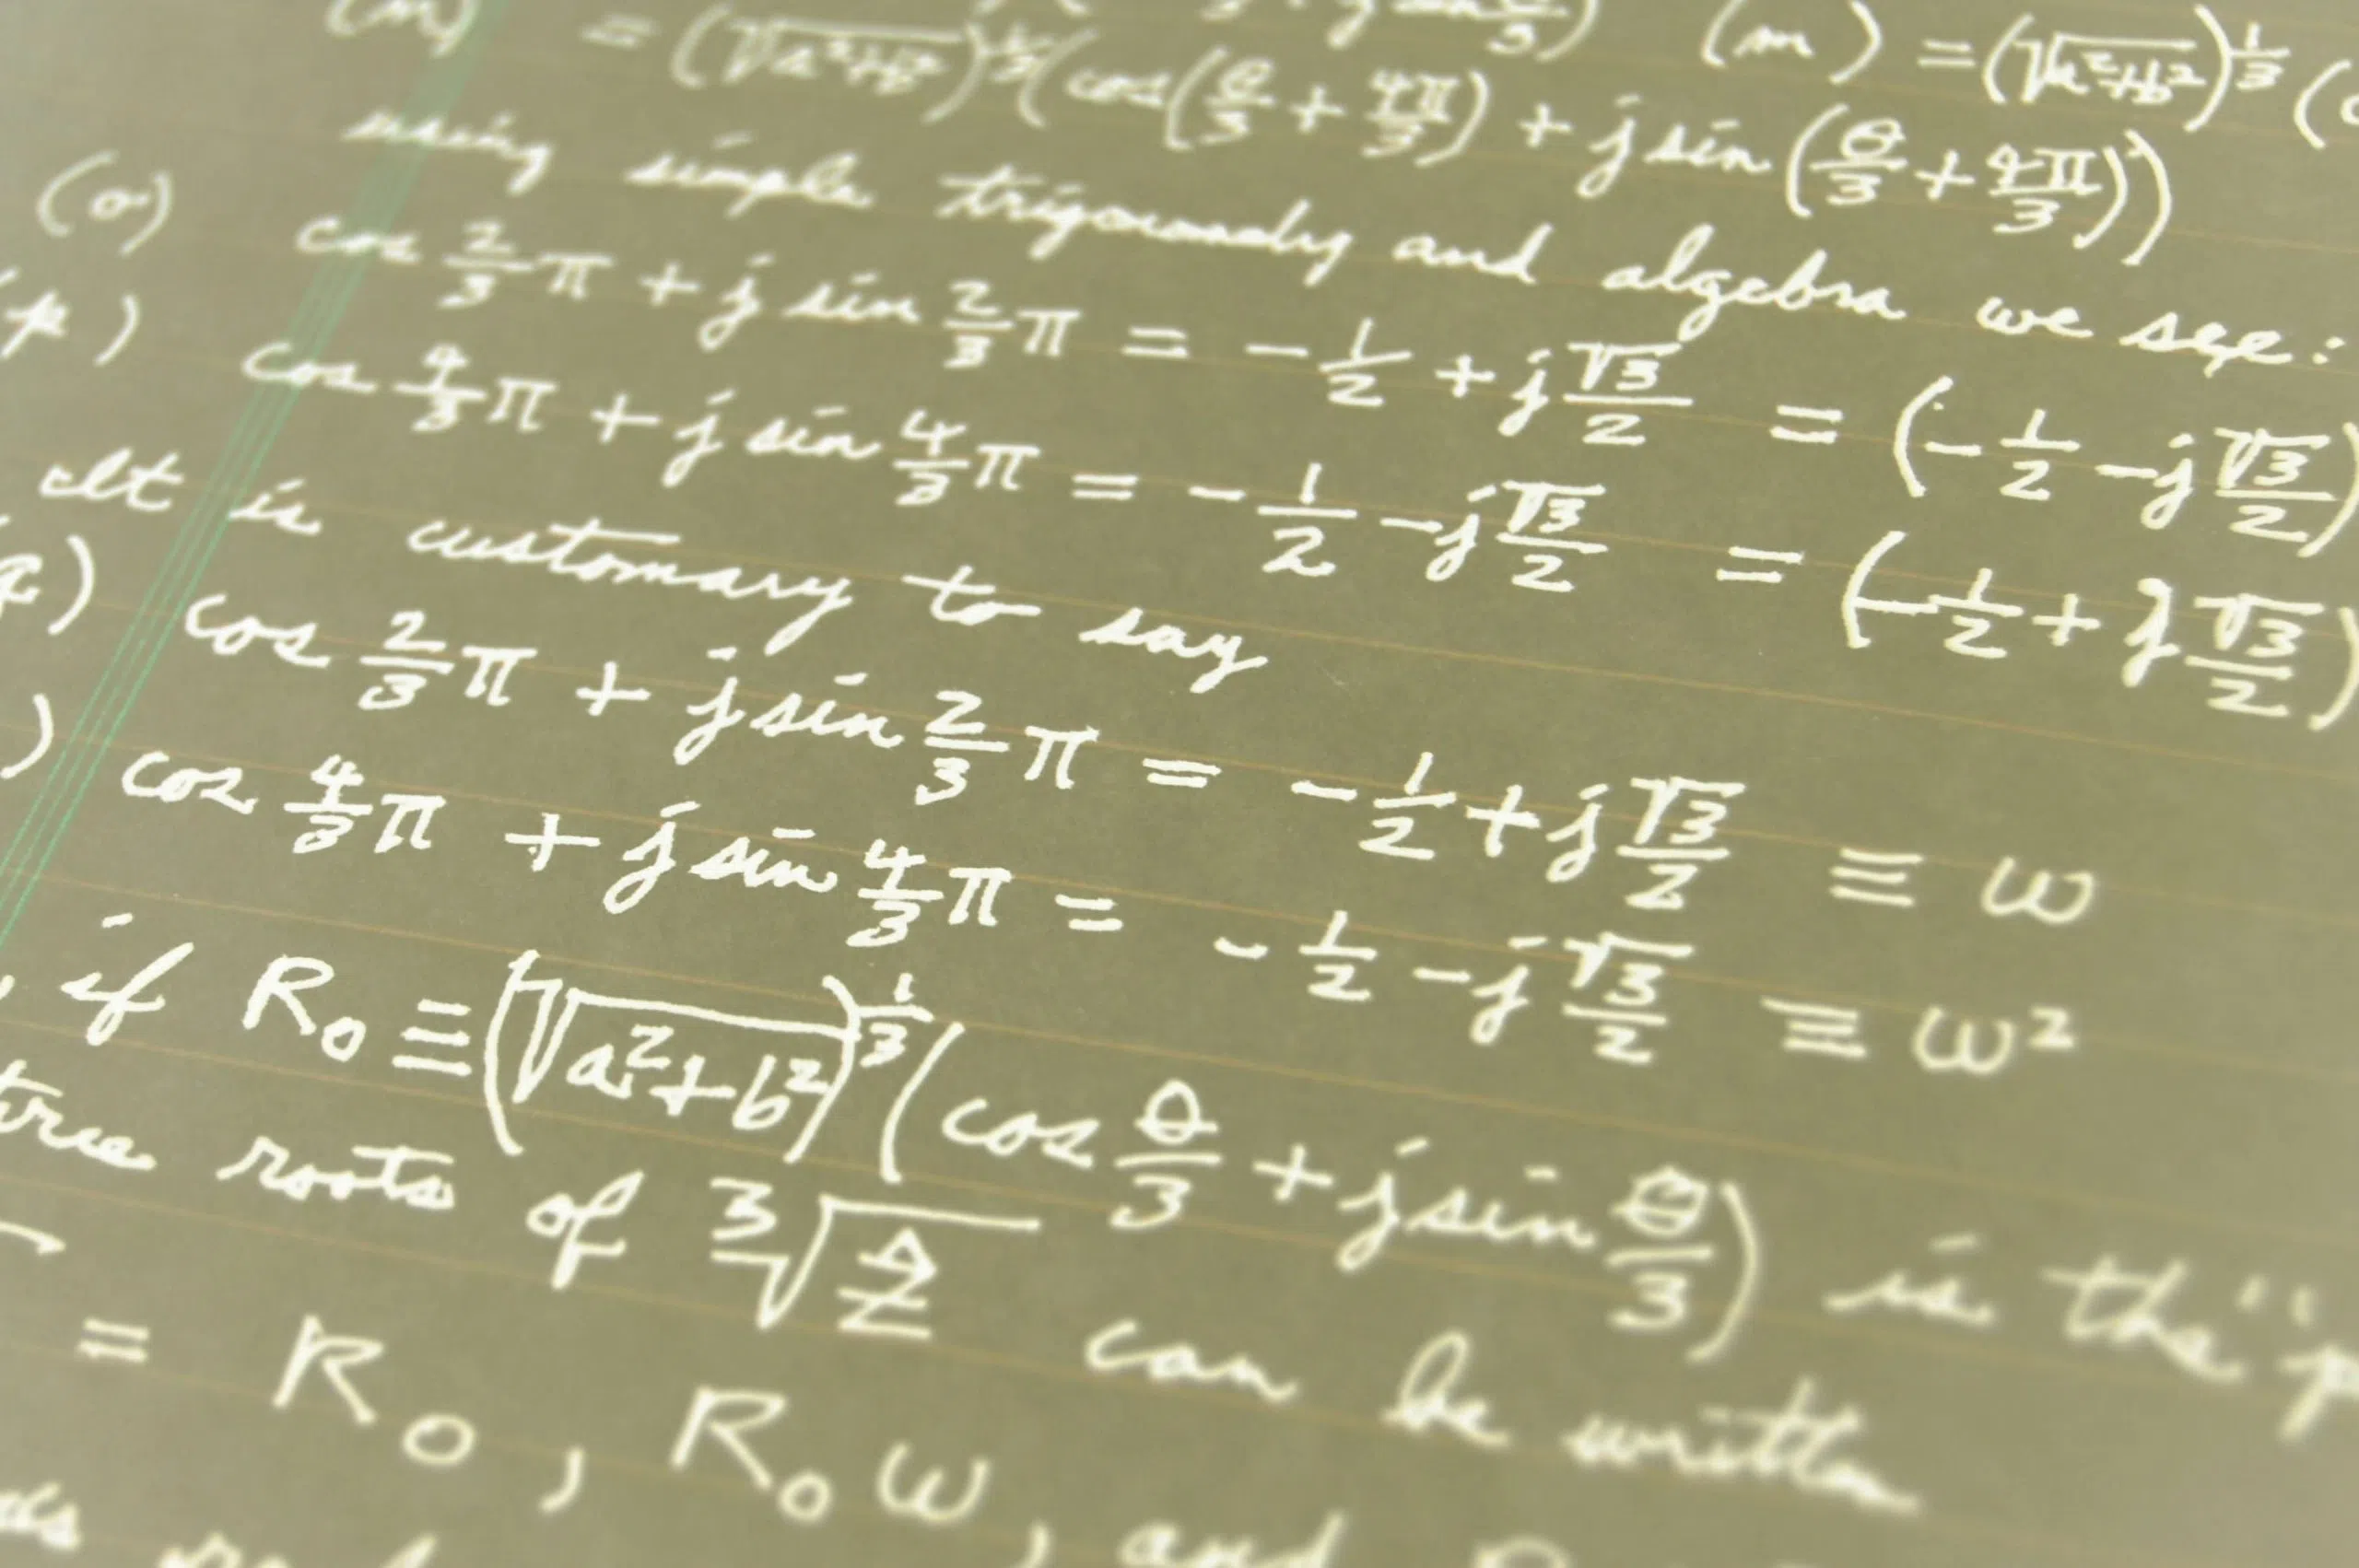 (m) = (√(a²+b²))^(1/3) (
(n) = (√(a²+b²))^(1/3) (cos(θ/3 + 4π/3) + j sin(θ/3 + 4π/3))
using simple trigonometry and algebra we see:
(o) cos 2/3 π + j sin 2/3 π = -1/2 + j √3/2 = (-1/2 - j √3/2)
(p) cos 4/3 π + j sin 4/3 π = -1/2 - j √3/2 = (-1/2 + j √3/2)
It is customary to say
(q) cos 2/3 π + j sin 2/3 π = -1/2 + j √3/2 ≡ ω
) cos 4/3 π + j sin 4/3 π = -1/2 - j √3/2 ≡ ω²
, if R₀ ≡ (√(a²+b²))^(1/3) (cos θ/3 + j sin θ/3) is the "p
roots of ∛ẑ can be written
= R₀, R₀ω, and